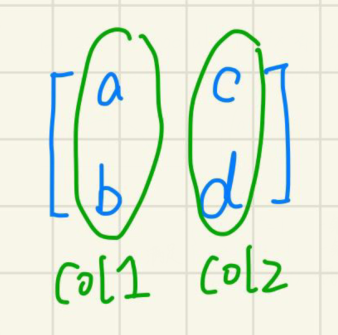 a c
b d
col1 col2